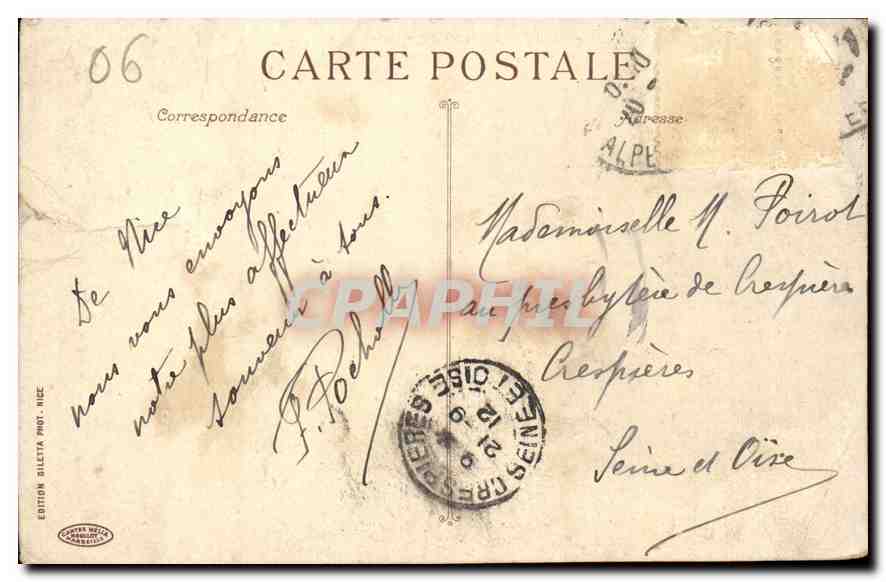 06
CARTE POSTALE
Correspondance
Adresse
ALPE
De Nice
nous vous envoyons
notre plus affectueux
souvenir à tous.
F. Pocholle
Mademoiselle M. Poirot
au presbytère de Crespières
Crespières
Seine et Oise
CPAPHIL
CRESPIERES
SEINE ET OISE
9
21 - 9
12
EDITION GILETTA PHOT. NICE
CARTES HELIA
MOULLOT
MARSEILLE